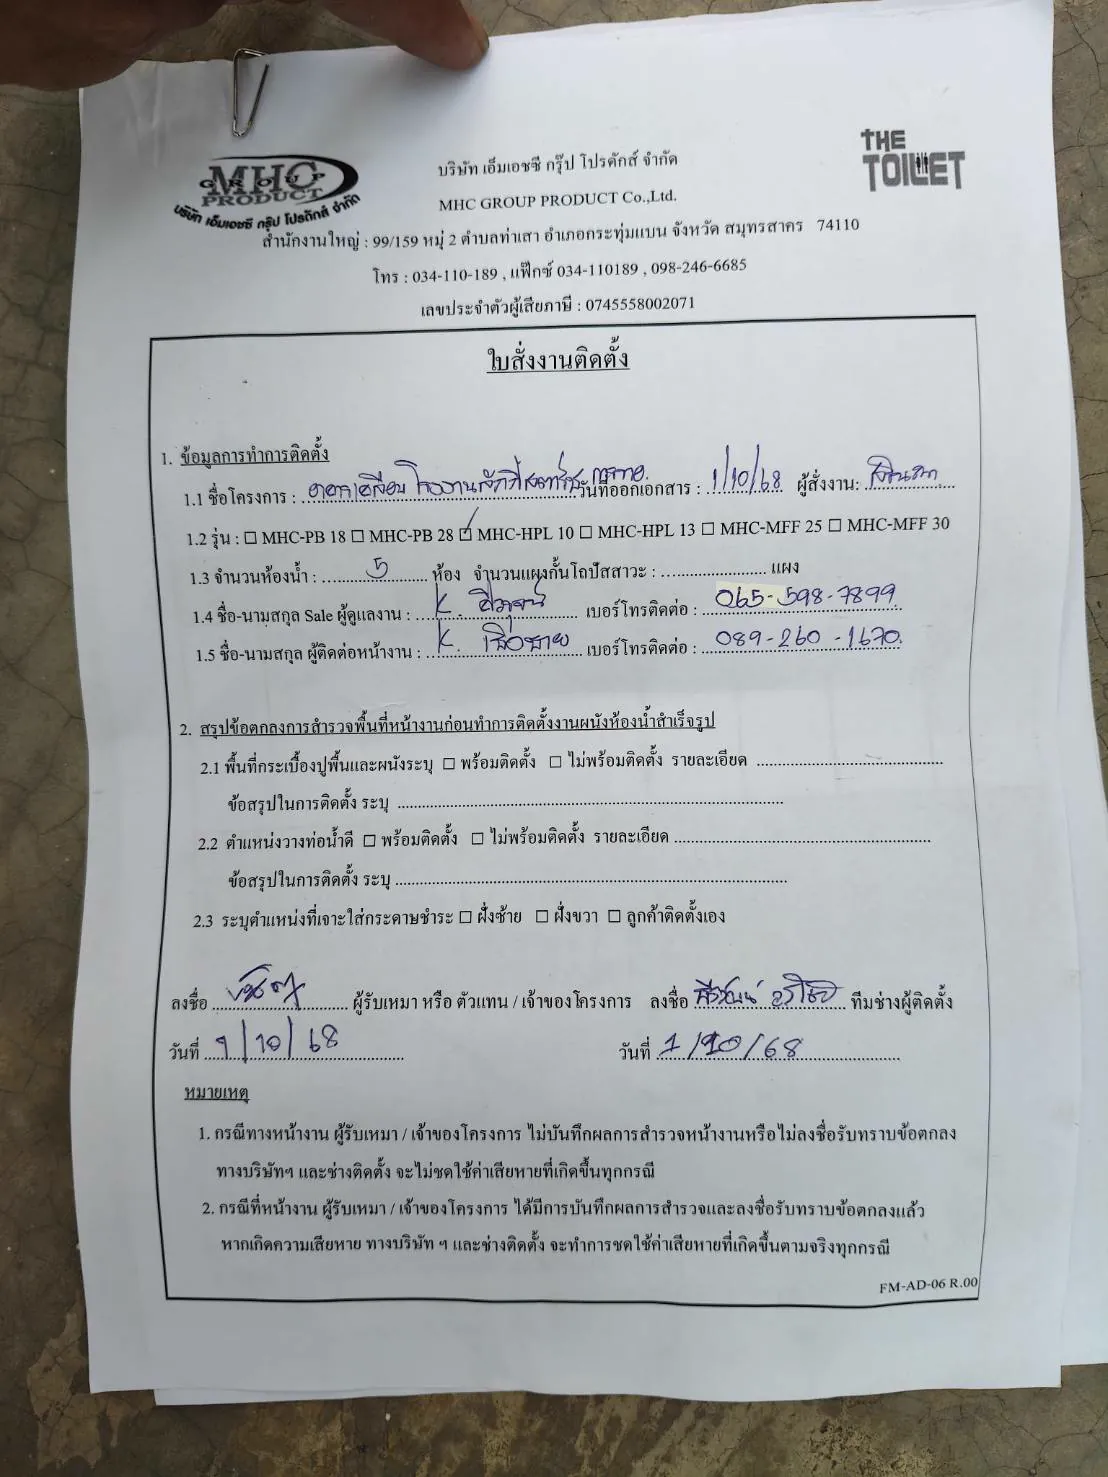 MHC
GROUP
PRODUCT
บริษัท เอ็มเอชซี กรุ๊ป โปรดักส์ จำกัด
THE
TOILET
บริษัท เอ็มเอชซี กรุ๊ป โปรดักส์ จำกัด
MHC GROUP PRODUCT Co.,Ltd.
สำนักงานใหญ่ : 99/159 หมู่ 2 ตำบลท่าเสา อำเภอกระทุ่มแบน จังหวัด สมุทรสาคร 74110
โทร : 034-110-189 , แฟ๊กซ์ 034-110189 , 098-246-6685
เลขประจำตัวผู้เสียภาษี : 0745558002071
ใบสั่งงานติดตั้ง
1. ข้อมูลการทำการติดตั้ง
1.1 ชื่อโครงการ : วันที่ออกเอกสาร : 1/10/68 ผู้สั่งงาน:
1.2 รุ่น : ☐ MHC-PB 18 ☐ MHC-PB 28 ☑ MHC-HPL 10 ☐ MHC-HPL 13 ☐ MHC-MFF 25 ☐ MHC-MFF 30
1.3 จำนวนห้องน้ำ : 5 ห้อง จำนวนแผงกั้นโถปัสสาวะ : แผง
1.4 ชื่อ-นามสกุล Sale ผู้ดูแลงาน : K. เบอร์โทรติดต่อ : 065-598-7899
1.5 ชื่อ-นามสกุล ผู้ติดต่อหน้างาน : K. เชี่ยวชาย เบอร์โทรติดต่อ : 089-260-1670
2. สรุปข้อตกลงการสำรวจพื้นที่หน้างานก่อนทำการติดตั้งงานผนังห้องน้ำสำเร็จรูป
2.1 พื้นที่กระเบื้องปูพื้นและผนังระบุ ☐ พร้อมติดตั้ง ☐ ไม่พร้อมติดตั้ง รายละเอียด
ข้อสรุปในการติดตั้ง ระบุ
2.2 ตำแหน่งวางท่อน้ำดี ☐ พร้อมติดตั้ง ☐ ไม่พร้อมติดตั้ง รายละเอียด
ข้อสรุปในการติดตั้ง ระบุ
2.3 ระบุตำแหน่งที่เจาะใส่กระดาษชำระ ☐ ฝั่งซ้าย ☐ ฝั่งขวา ☐ ลูกค้าติดตั้งเอง
ลงชื่อ ผู้รับเหมา หรือ ตัวแทน / เจ้าของโครงการ ลงชื่อ ทีมช่างผู้ติดตั้ง
วันที่ 1/10/68 วันที่ 1/10/68
หมายเหตุ
1. กรณีทางหน้างาน ผู้รับเหมา / เจ้าของโครงการ ไม่บันทึกผลการสำรวจหน้างานหรือไม่ลงชื่อรับทราบข้อตกลง
ทางบริษัทฯ และช่างติดตั้ง จะไม่ชดใช้ค่าเสียหายที่เกิดขึ้นทุกกรณี
2. กรณีที่หน้างาน ผู้รับเหมา / เจ้าของโครงการ ได้มีการบันทึกผลการสำรวจและลงชื่อรับทราบข้อตกลงแล้ว
หากเกิดความเสียหาย ทางบริษัท ฯ และช่างติดตั้ง จะทำการชดใช้ค่าเสียหายที่เกิดขึ้นตามจริงทุกกรณี
FM-AD-06 R.00